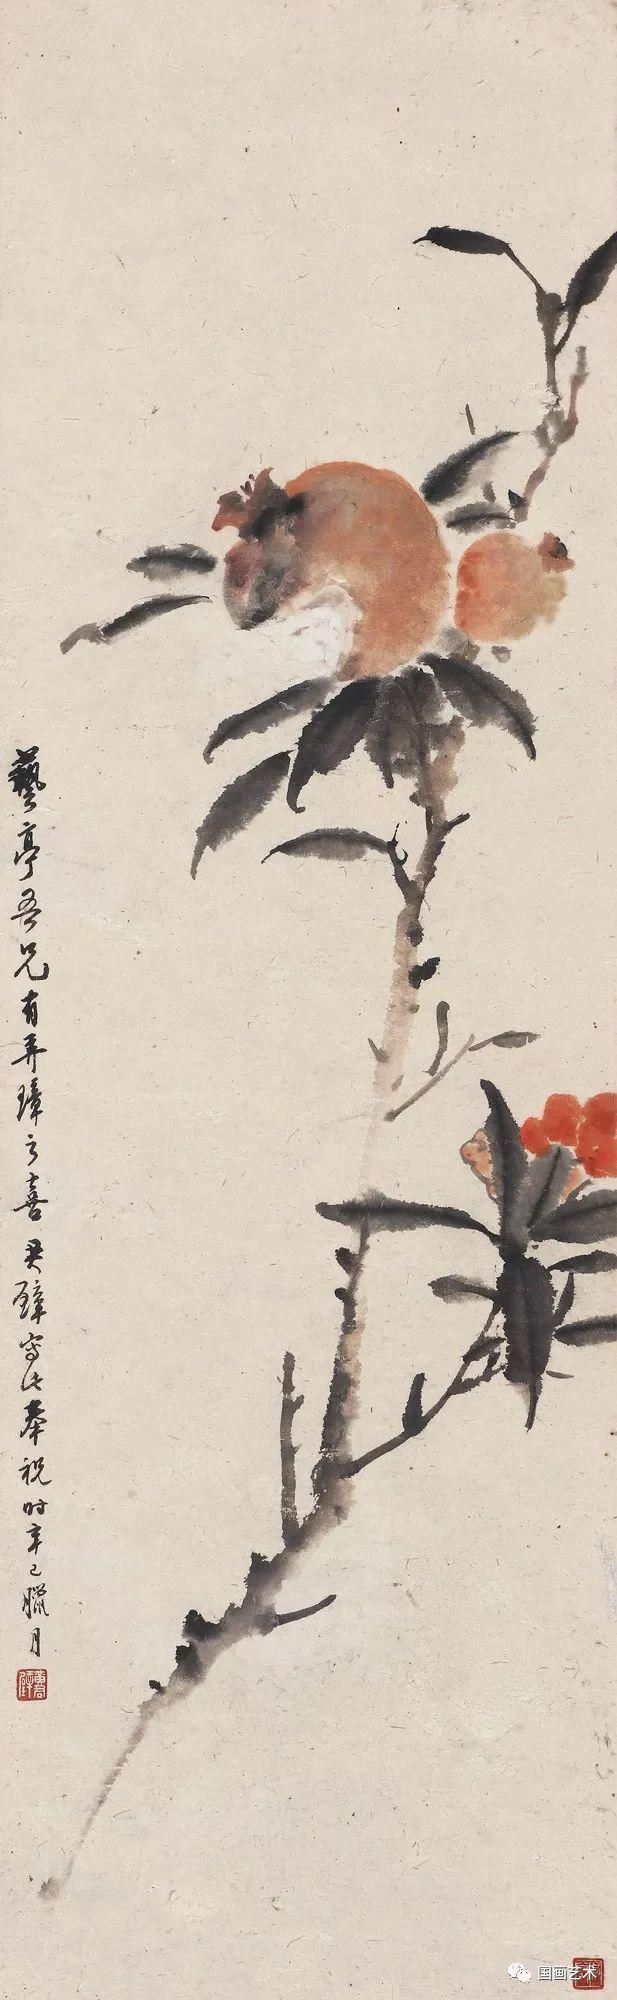 藝亭吾兄有弄璋之喜君璧寫此奉祝时辛巳臘月
国画艺术